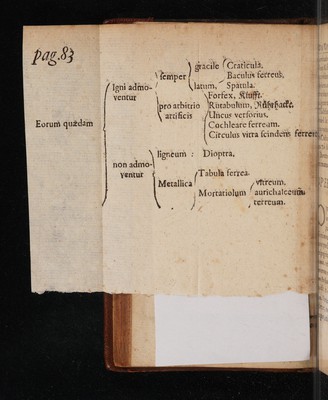 pag. 83
Eorum quædam
Igni admo-
ventur
semper
gracile
Craticula.
Baculus ferreus.
latum, Spatula.
pro arbitrio
artificis
Forfex, Klufft.
Rutabulum, Rührhacke.
Uncus versorius.
Cochleare ferream.
Circulus vitra scindens ferreus
non admo-
ventur
ligneum : Dioptra,
Metallica
Tabula ferrea.
Mortariolum
vitreum.
aurichalceum
ferreum.